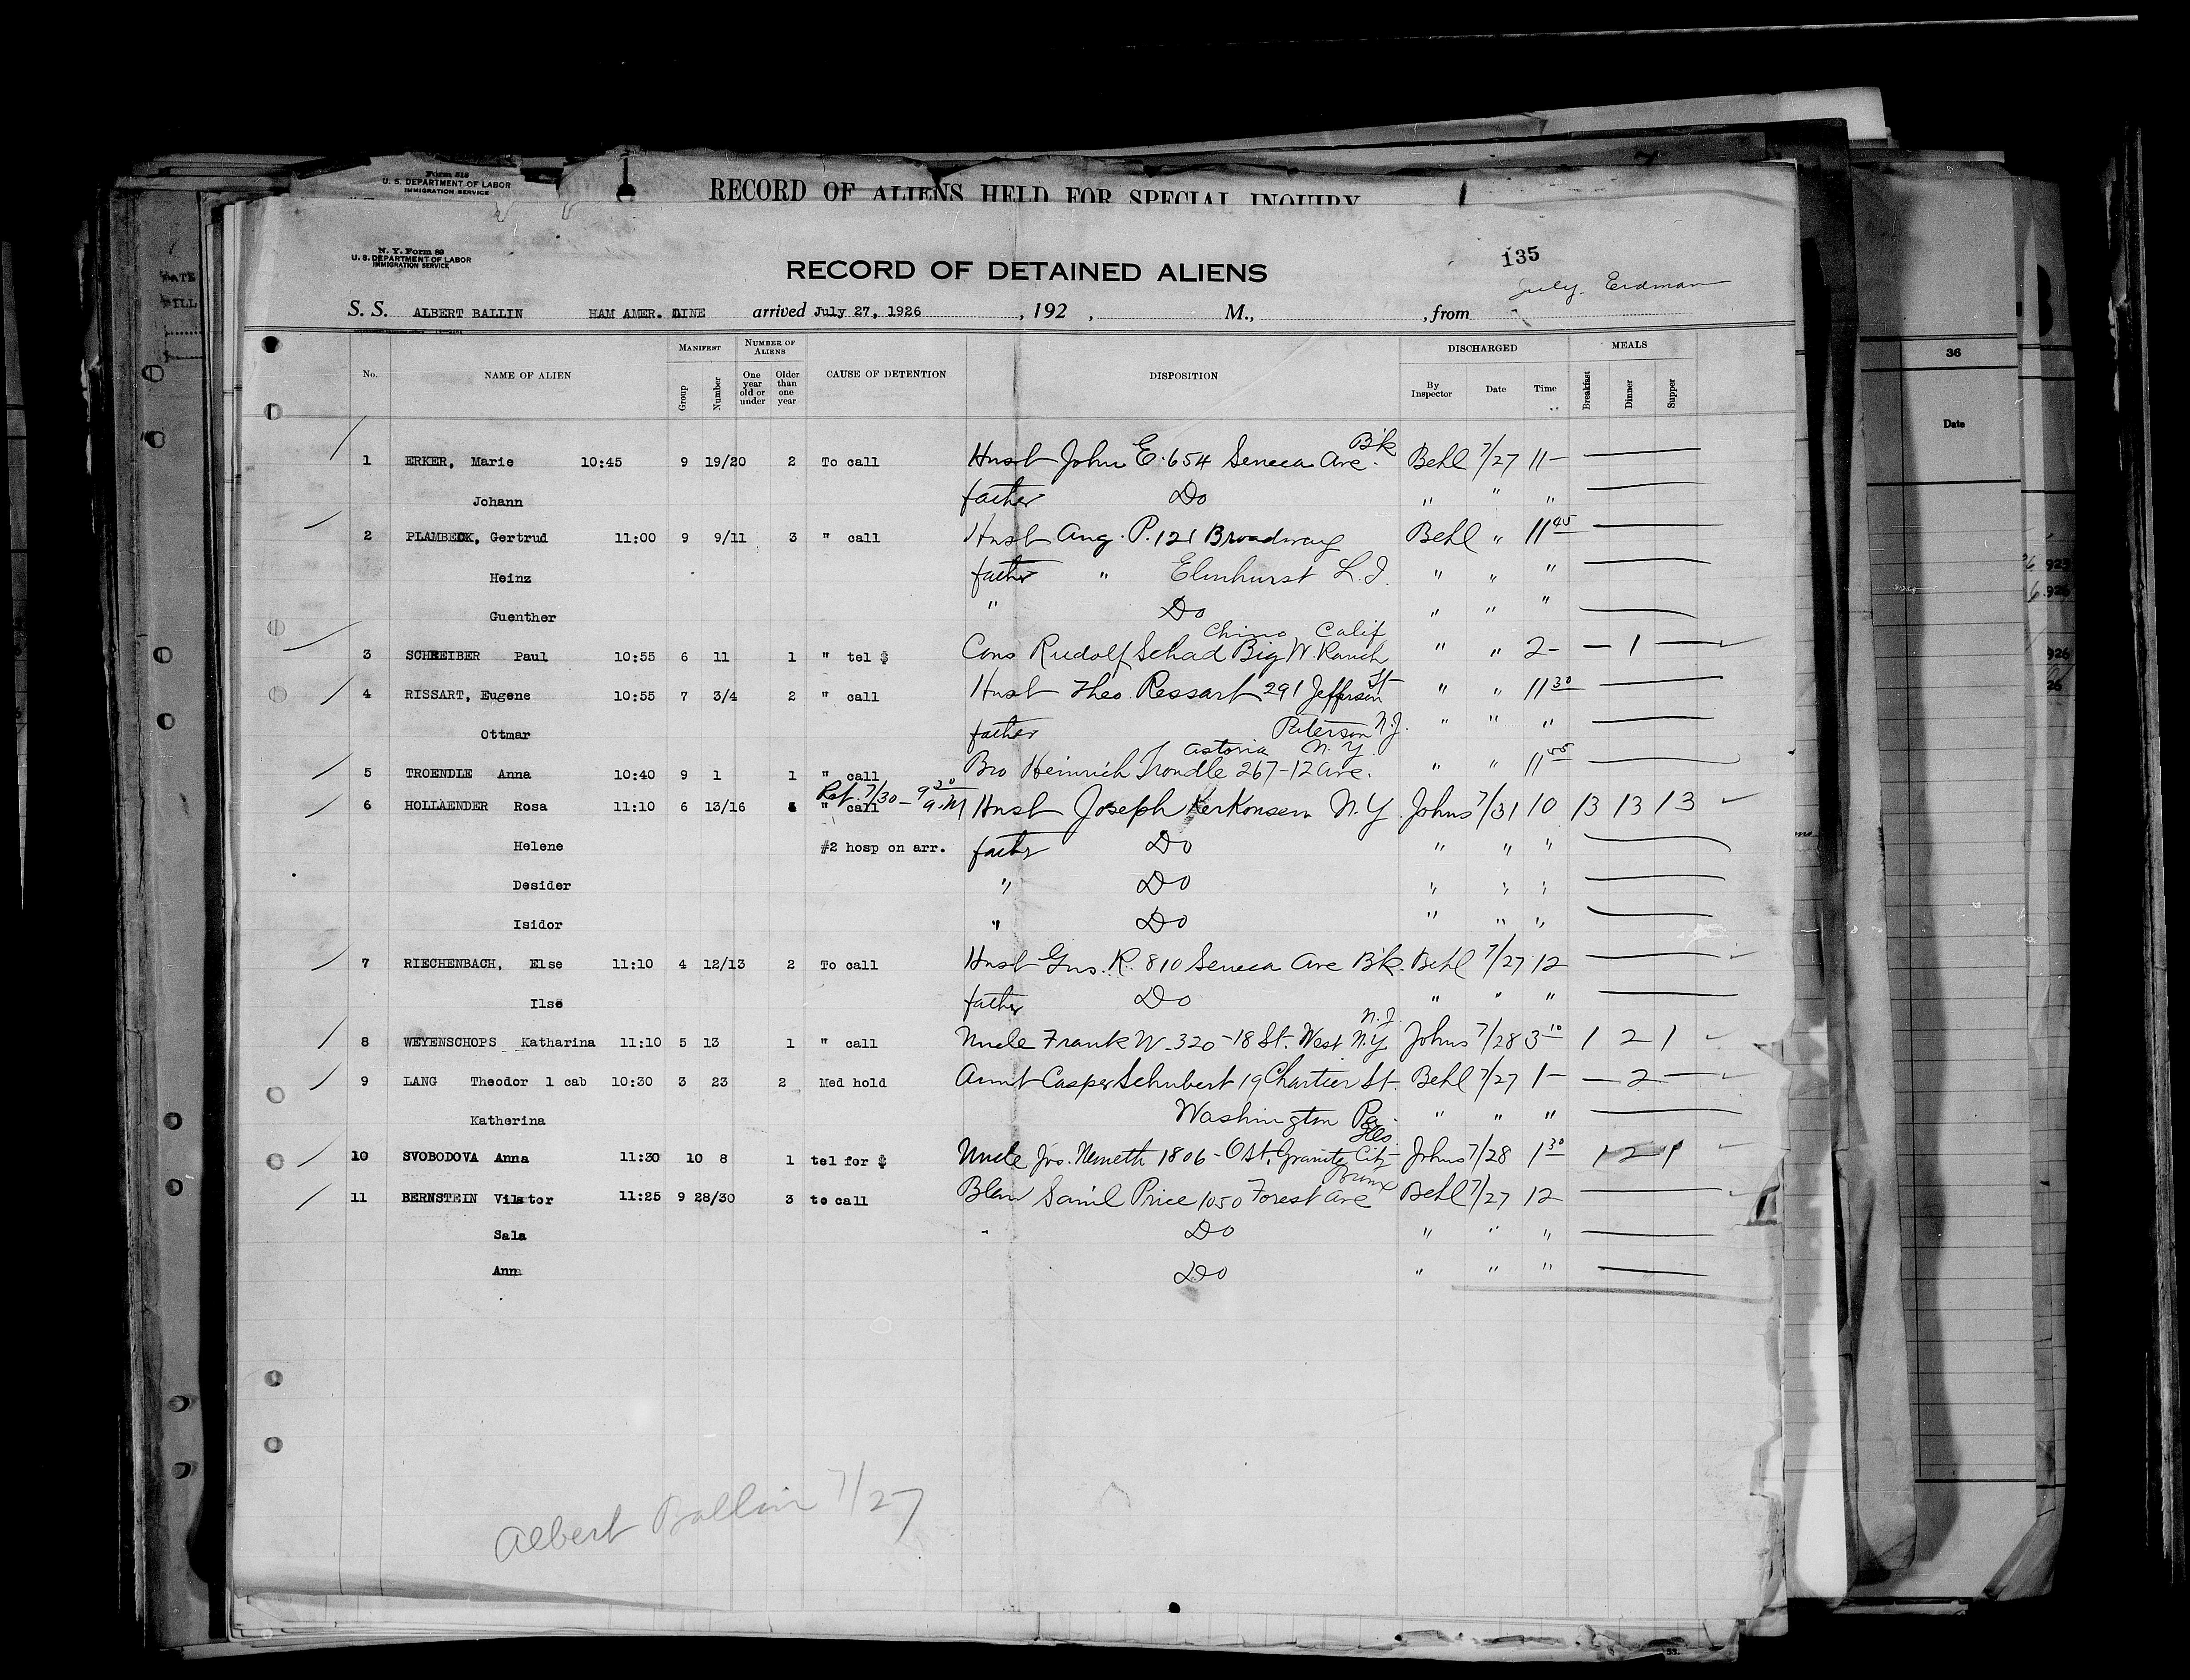 Form 518
U. S. DEPARTMENT OF LABOR
IMMIGRATION SERVICE
RECORD OF ALIENS HELD FOR SPECIAL INQUIRY
N. Y. Form 89
U. S. DEPARTMENT OF LABOR
IMMIGRATION SERVICE
RECORD OF DETAINED ALIENS
135
July. Erdman
S. S. ALBERT BALLIN HAM AMER. LINE arrived July 27, 1926 , 192 , M., , from
No. NAME OF ALIEN MANIFEST Group Number NUMBER OF ALIENS One year old or under Older than one year CAUSE OF DETENTION DISPOSITION DISCHARGED By Inspector Date Time MEALS Breakfast Dinner Supper
1 ERKER, Marie 10:45 9 19/20 2 To call Husb John E. 654 Seneca Ave. Bk Behl 7/27 11 —
Johann father Do " " "
2 PLAMBECK, Gertrud 11:00 9 9/11 3 " call Husb Aug. P. 121 Broadway Behl " 11 45
Heinz father " Elmhurst L.I. " " "
Guenther " Do " " "
3 SCHREIBER Paul 10:55 6 11 1 " tel $ Cous Rudolf Schad Big W. Ranch Chino Calif " " 2 - — 1 —
4 RISSART, Eugene 10:55 7 3/4 2 " call Husb Theo. Ressart 291 Jefferson St " " 11 30
Ottmar father Paterson N.J. " " "
5 TROENDLE Anna 10:40 9 1 1 " call Bro Heinrich Trondle 267-12 Ave. Astoria N.Y. " " 11 55
6 HOLLAENDER Rosa 11:10 6 13/16 " call Ret. 7/30 - 9 30 a.M Husb Joseph Kerkonsern N.Y. Johns 7/31 10 13 13 13
Helene #2 hosp on arr. father Do " " "
Desider " Do " " "
Isidor " Do " " "
7 RIECHENBACH, Else 11:10 4 12/13 2 To call Husb Gus. R. 810 Seneca Ave Bk. Behl 7/27 12
Ilse father Do " " "
8 WEYENSCHOPS Katharina 11:10 5 13 1 " call Uncle Frank W. 320-18 St. West N.Y. N.J. Johns 7/28 3 10 1 2 1
9 LANG Theodor 1 cab 10:30 3 23 2 Med hold Aunt Casper Schubert 19 Chartier St. Behl 7/27 1 — — 2 —
Katherina Washington Pa. " " "
10 SVOBODOVA Anna 11:30 10 8 1 tel for $ Uncle Jos. Nemeth 1806 - O St. Granite City Ills. Johns 7/28 1 30 1 2 1
11 BERNSTEIN Viktor 11:25 9 28/30 3 to call Saml Price 1050 Forest Ave Bronx Behl 7/27 12
Sala " Do " " "
Anna Do " " "
Albert Ballin 7/27
36
Date